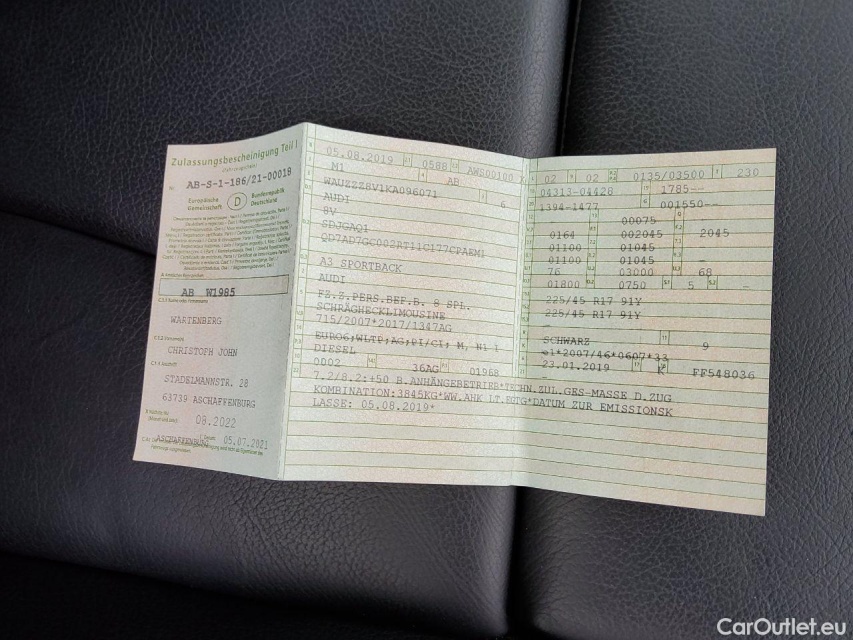 Zulassungsbescheinigung Teil I
AB-S-1-186/21-00018
Europäische Gemeinschaft
D
Bundesrepublik Deutschland
AB W1985
WARTENBERG
CHRISTOPH JOHN
STADELMANNSTR. 28
63739 ASCHAFFENBURG
08.2022
ASCHAFFENBURG 05.07.2021
05.08.2019 0588 AWS00100
M1 AB
WAUZZZ8V1KA096071 6
AUDI
8V
SDJGAQ1
QD7AD7GC002RT11C177CPAEM1
A3 SPORTBACK
AUDI
FZ.Z.PERS.BEF.B. 8 SPL.
SCHRÄGHECKLIMOUSINE
715/2007*2017/1347AG
EURO6;WLTP;AG;PI/CI; M, N1 I
DIESEL
0002 36AG 01968
02 02 0135/03500 230
04313-04428 1785--
1394-1477 001550--
00075
0164 002045 2045
01100 01045 -
01100 01045 -
76 03000 68
01800 0750 5 -
225/45 R17 91Y
225/45 R17 91Y
-
SCHWARZ 9
e1*2007/46*0607*33
23.01.2019 K FF548036
7.2/8.2:+50 B.ANHÄNGEBETRIEB*TECHN.ZUL.GES-MASSE D.ZUG
KOMBINATION:3845KG*WW.AHK LT.EGTG*DATUM ZUR EMISSIONSK
LASSE: 05.08.2019*
CarOutlet.eu